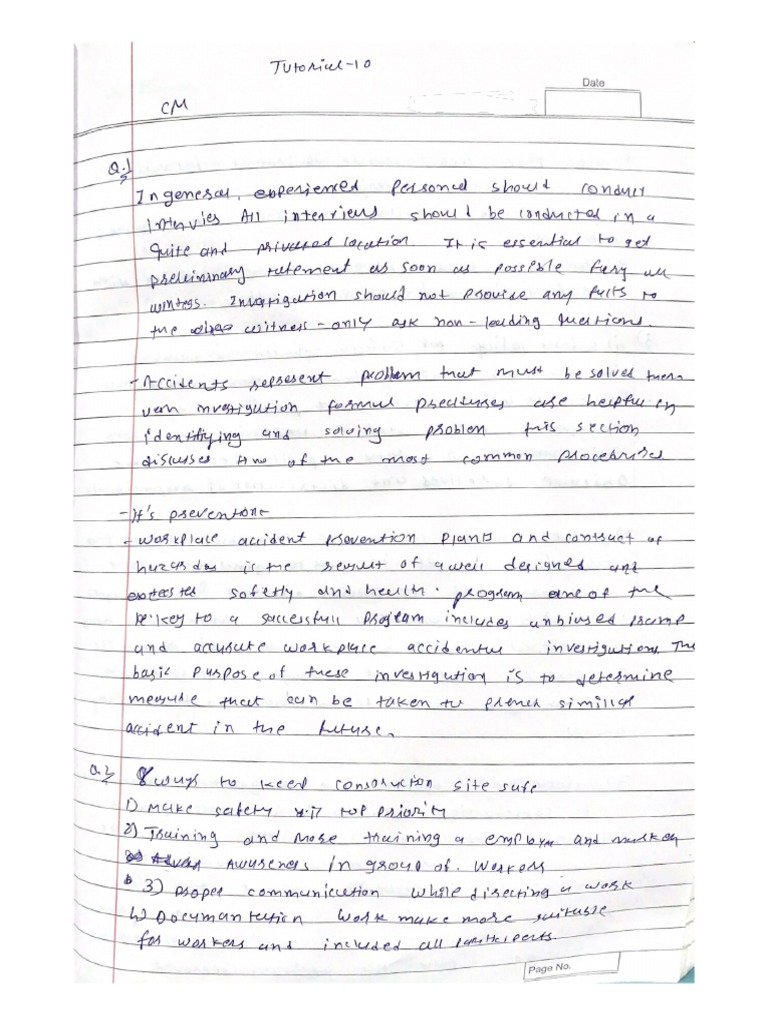 Tutorial-10
Date
CM
Q.1
In general, experienced Personal should conduct
Intervies All interviews should be conducted in a
Quite and privated location. It is essential to get
preliminary statement as soon as possible
witness. Investigation should not provide any to
the witness - only ask non-leading Questions.
- Accidents represent problem that must be solved
investigation formal are helpful in
identifying and solving problem this section
discusses two of the most common procedures
- It's prevention:-
- workplace accident prevention plans and contract of
is the result of a well designed and
safetly and health. program one of the
key to a successfull program includes unbiused
and accurate workplace investigutions The
basic Purpose of these investigution is to determine
measure that can be taken to similar
accident in the future.
Q.2 8 ways to keep construction site safe
1) Make safety top priority
2) Training and more training a and
Awareness in group of. workers
3) proper communication while directing a work
4) Documantution work make more suitable
for workers and included all
Page No.